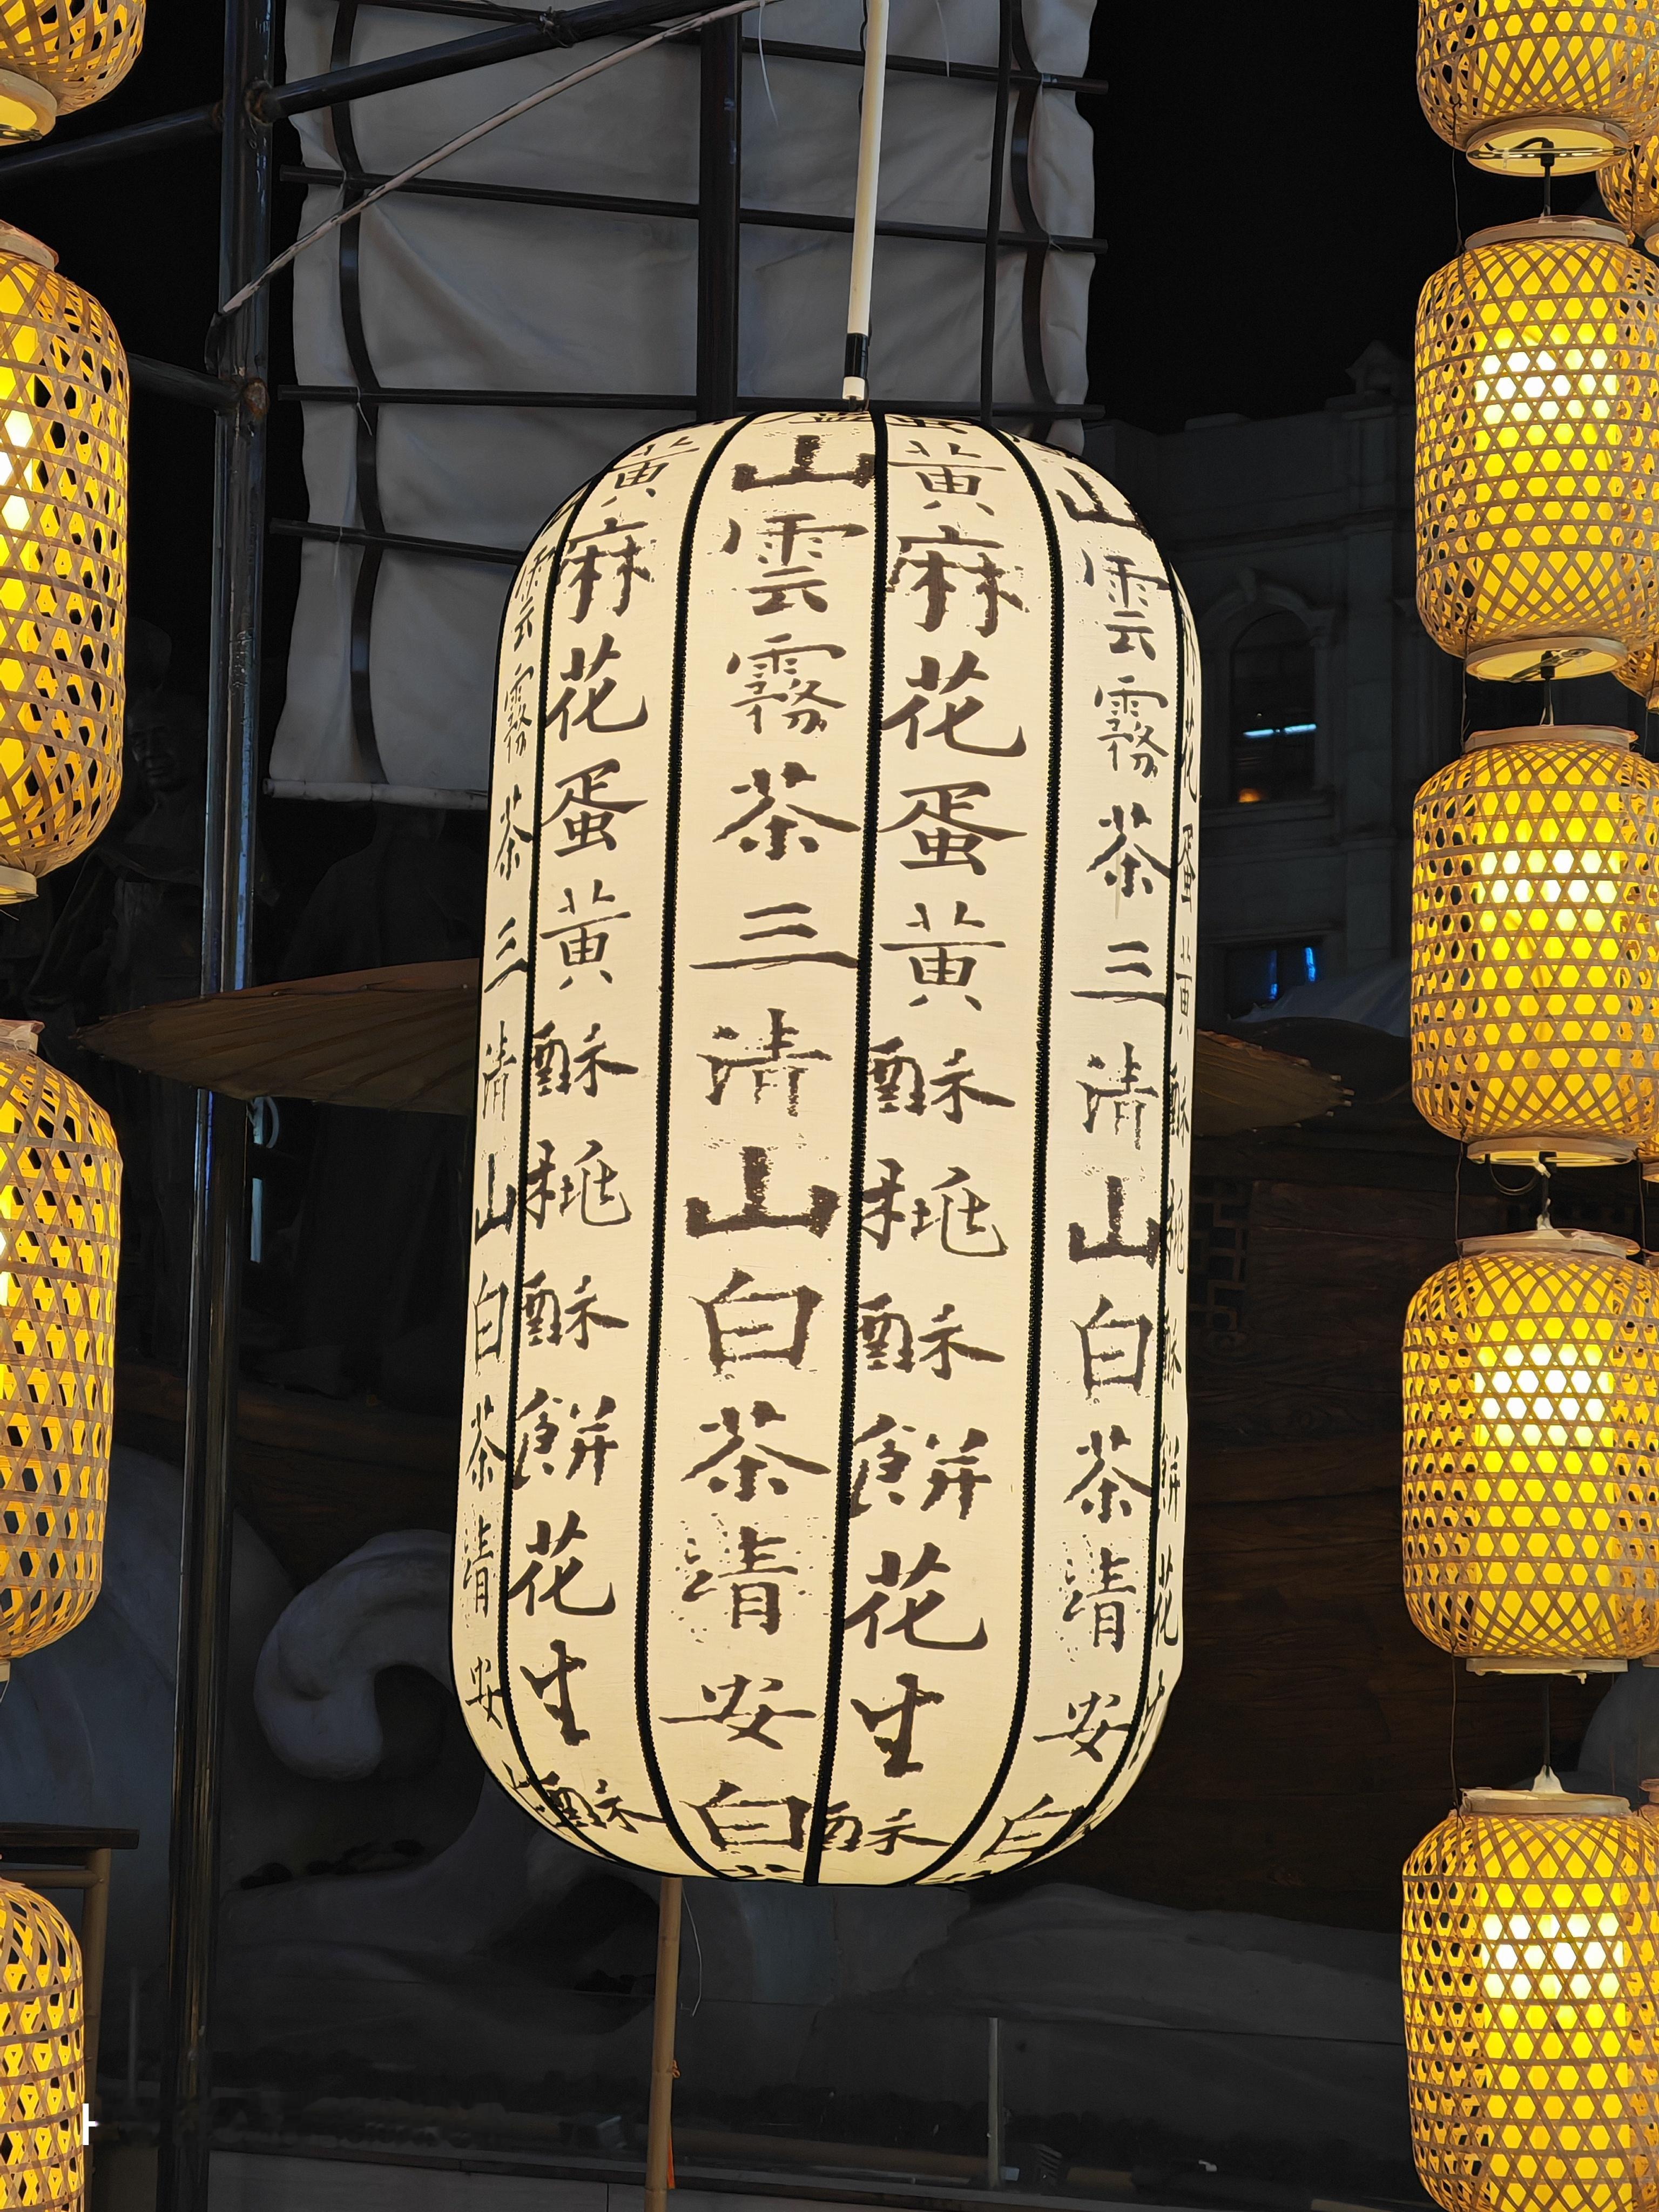 花蛋黄酥桃酥餅花生
山雲霧茶三清山白茶清安白
黄麻花蛋黄酥桃酥餅花生酥
山雲霧茶三清山白茶清安白
黄麻花蛋黄酥桃酥餅花生酥
雲霧茶三清山白茶清安